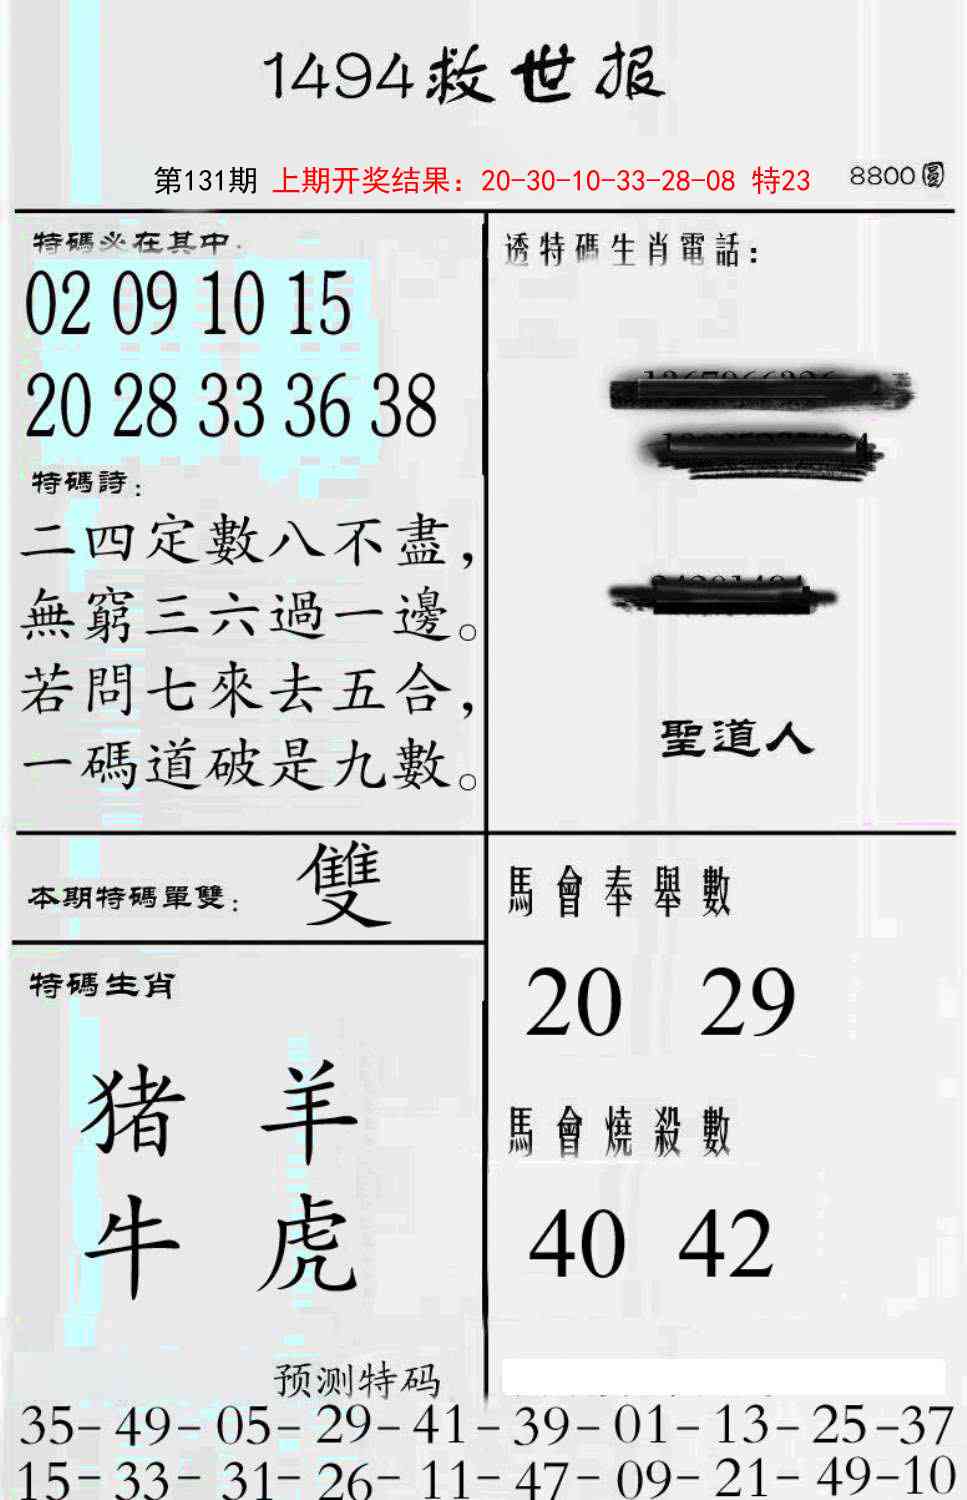 1494救世报
第131期 上期开奖结果：20-30-10-33-28-08 特23 8800圓
特碼必在其中：
02 09 10 15
20 28 33 36 38
特碼詩：
二四定數八不盡，
無窮三六過一邊。
若問七來去五合，
一碼道破是九數。
透特碼生肖電話：
聖道人
本期特碼單雙： 雙
特碼生肖
猪 羊
牛 虎
馬會奉舉數
20 29
馬會燒殺數
40 42
预测特码
35-49-05-29-41-39-01-13-25-37
15-33-31-26-11-47-09-21-49-10